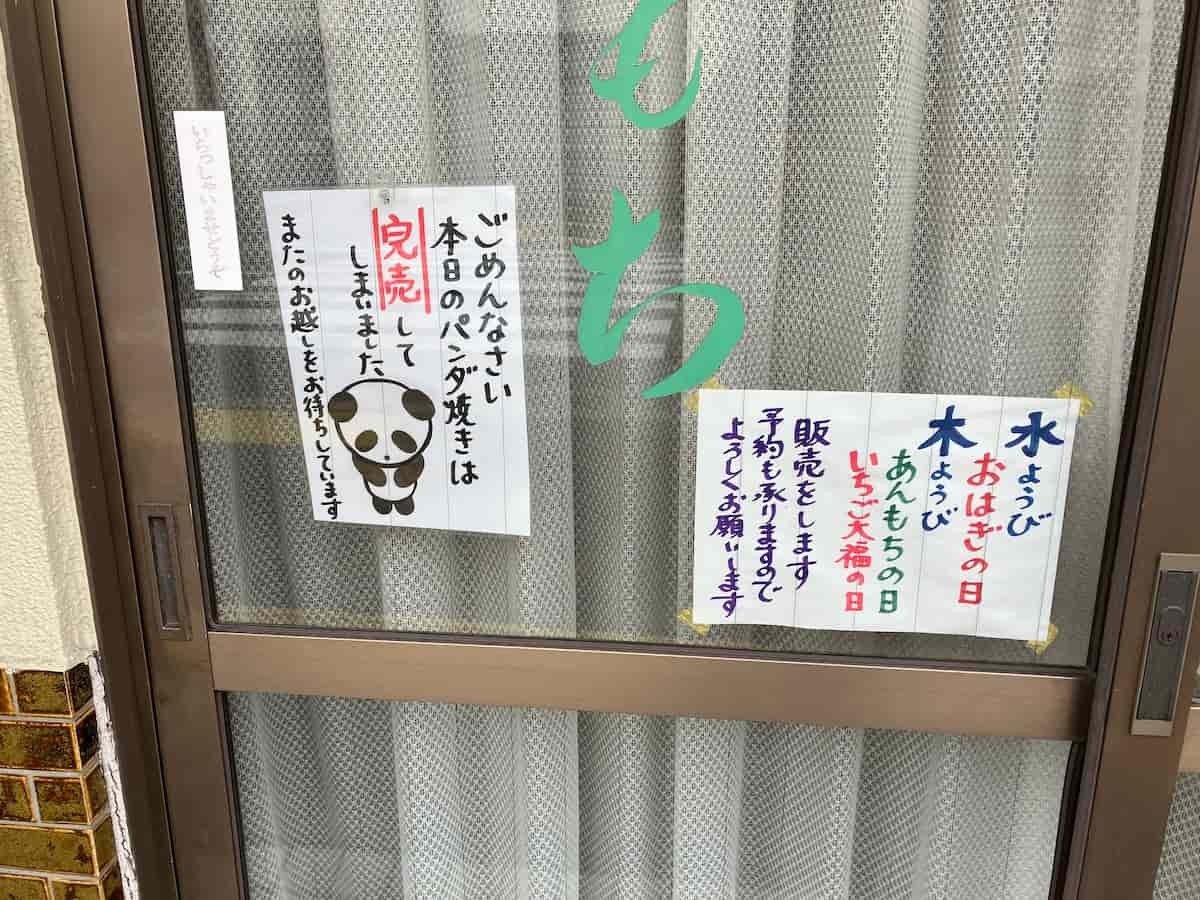 もち
いらっしゃいませどうぞ
ごめんなさい
本日のパンダ焼きは
完売して
しまいました
またのお越しをお待ちしています
水ようび
おはぎの日
木ようび
あんもちの日
いちご大福の日
販売をします
予約も承りますので
よろしくお願いします